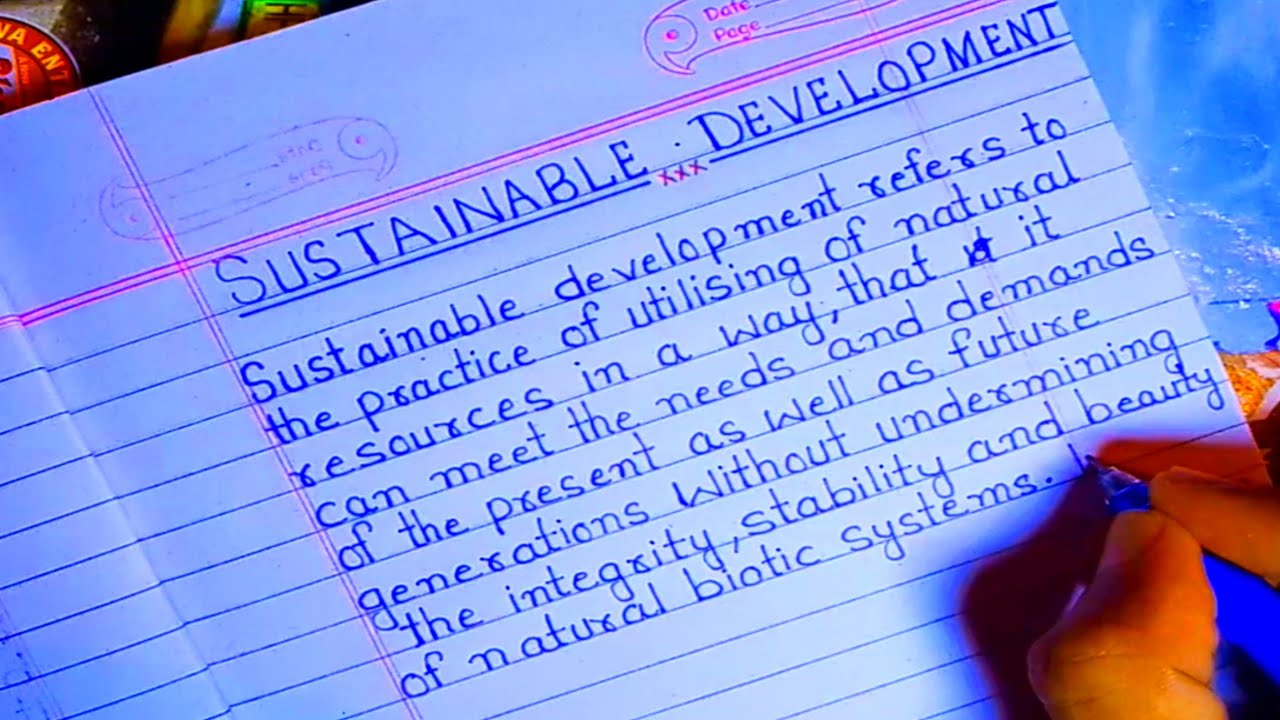 NA ENT
Date
Page
SUSTAINABLE DEVELOPMENT
xxx
Sustainable development refers to
the practice of utilising of natural
resources in a way, that it
can meet the needs and demands
of the present as well as future
generations without undermining
the integrity, stability and beauty
of natural biotic systems.